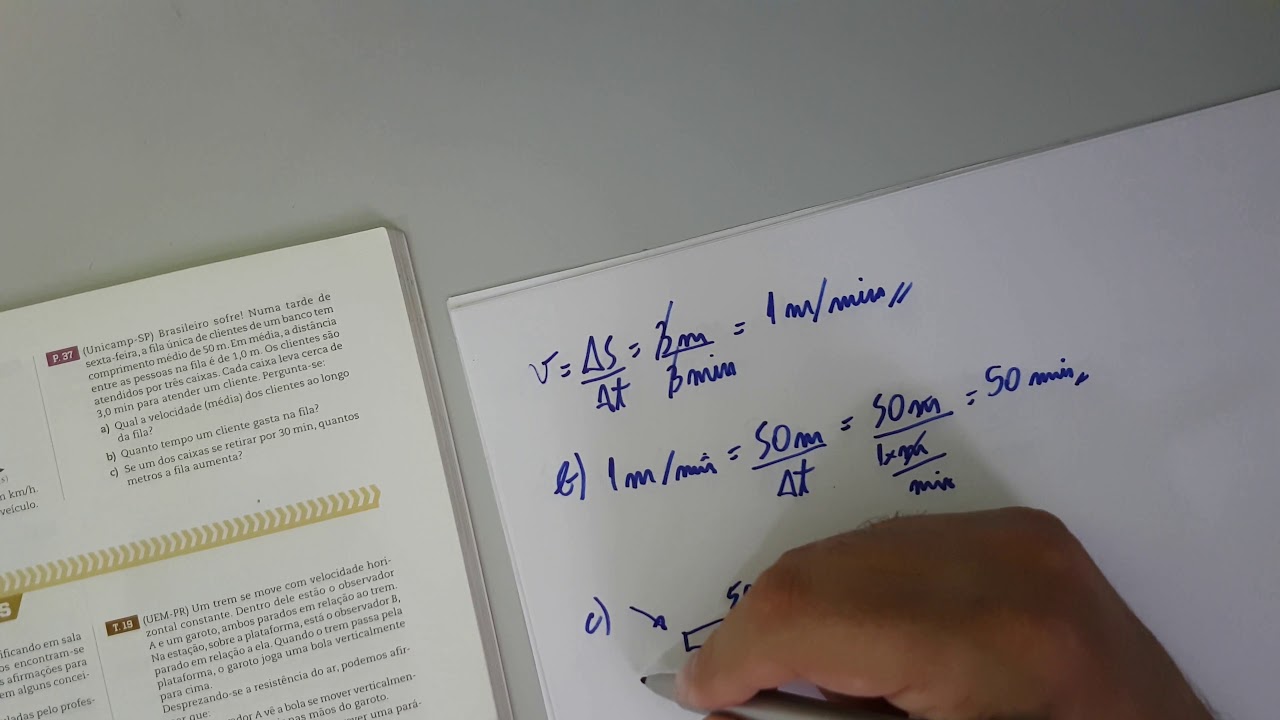 P. 37 (Unicamp-SP) Brasileiro sofre! Numa tarde de
sexta-feira, a fila única de clientes de um banco tem
comprimento médio de 50 m. Em média, a distância
entre as pessoas na fila é de 1,0 m. Os clientes são
atendidos por três caixas. Cada caixa leva cerca de
3,0 min para atender um cliente. Pergunta-se:
a) Qual a velocidade (média) dos clientes ao longo
da fila?
b) Quanto tempo um cliente gasta na fila?
c) Se um dos caixas se retirar por 30 min, quantos
metros a fila aumenta?
km/h.
veículo.
S
em sala
encontram-se
afirmações para
em alguns concei-
pelo profes-
T. 19 (UEM-PR) Um trem se move com velocidade hori-
zontal constante. Dentro dele estão o observador
A e um garoto, ambos parados em relação ao trem.
Na estação, sobre a plataforma, está o observador B,
parado em relação a ela. Quando o trem passa pela
plataforma, o garoto joga uma bola verticalmente
para cima.
Desprezando-se a resistência do ar, podemos afir-
que:
A vê a bola se mover verticalmen-
nas mãos do garoto.
uma pará-
v = ΔS/Δt = 3m/3min = 1 m/min
b) 1 m/min = 50m/Δt = 50m/1m/min = 50 min
c)